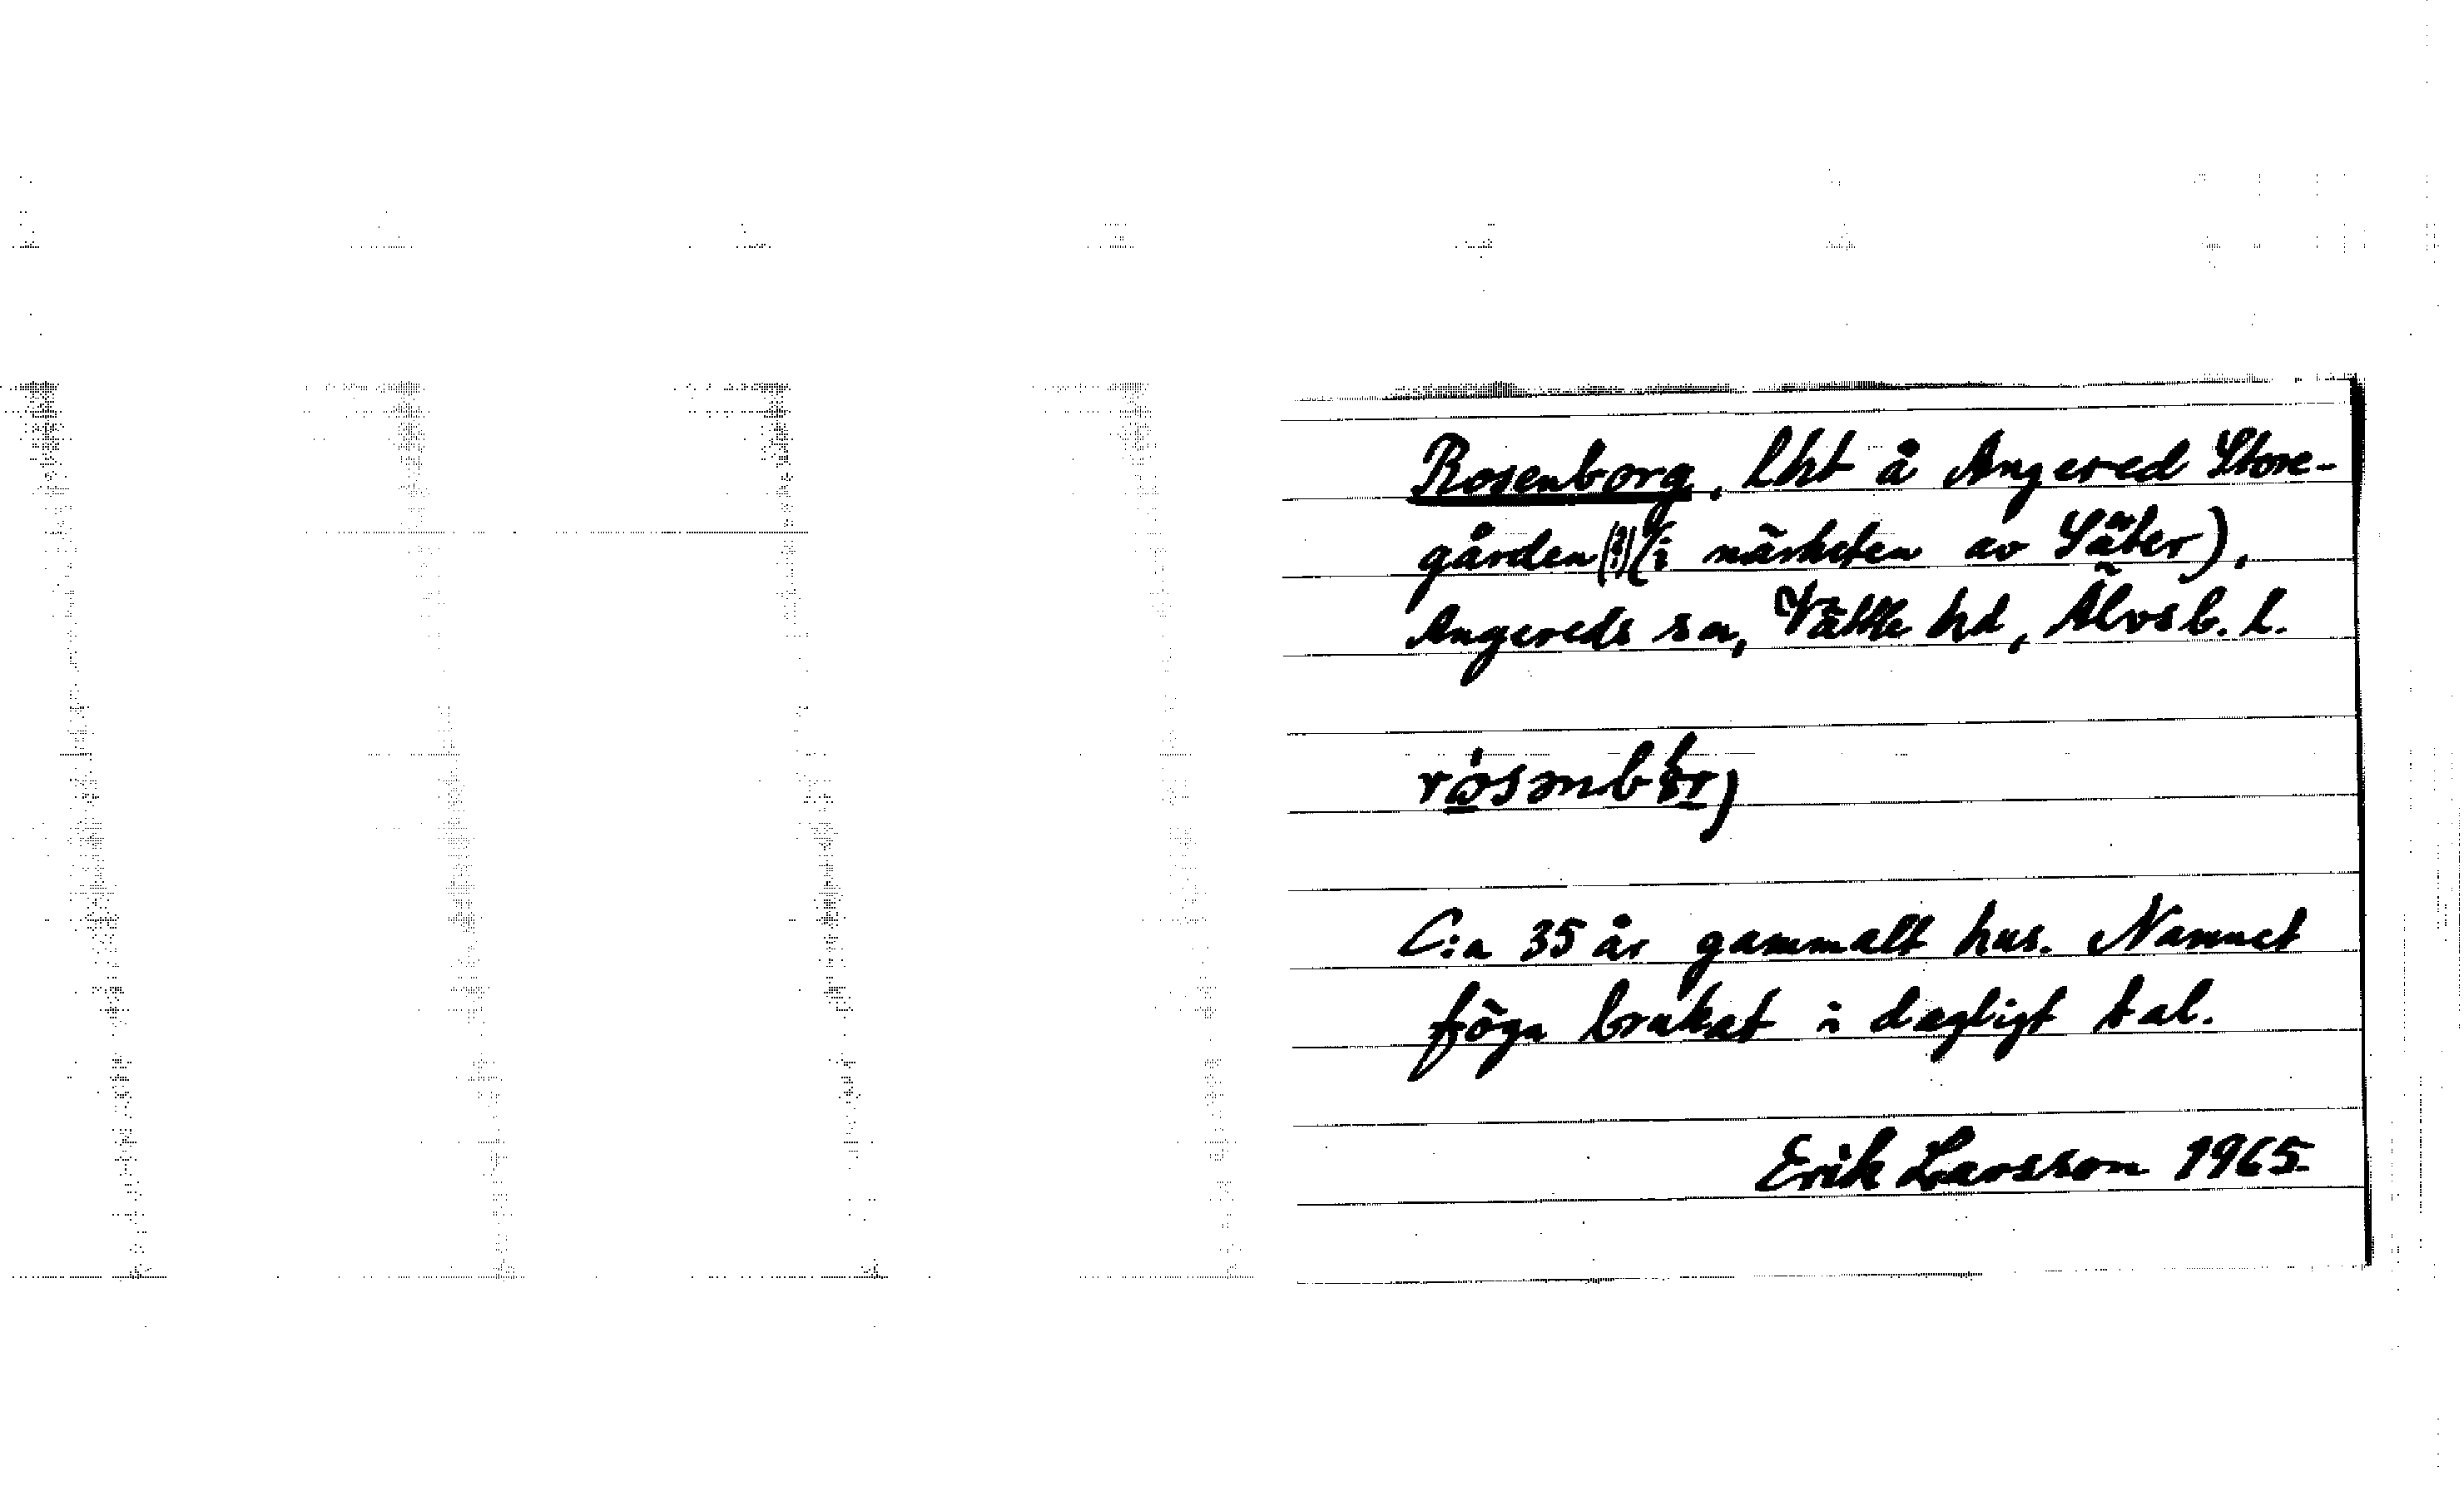 Rosenborg, lht å Angered Store-
gården (?) (i närheten av Säter),
Angereds sn, Vättle hd, Älvsb. l.
C:a 35 år gammalt hus. Namnet
föga brukat i dagligt tal.
Erik Larsson 1965